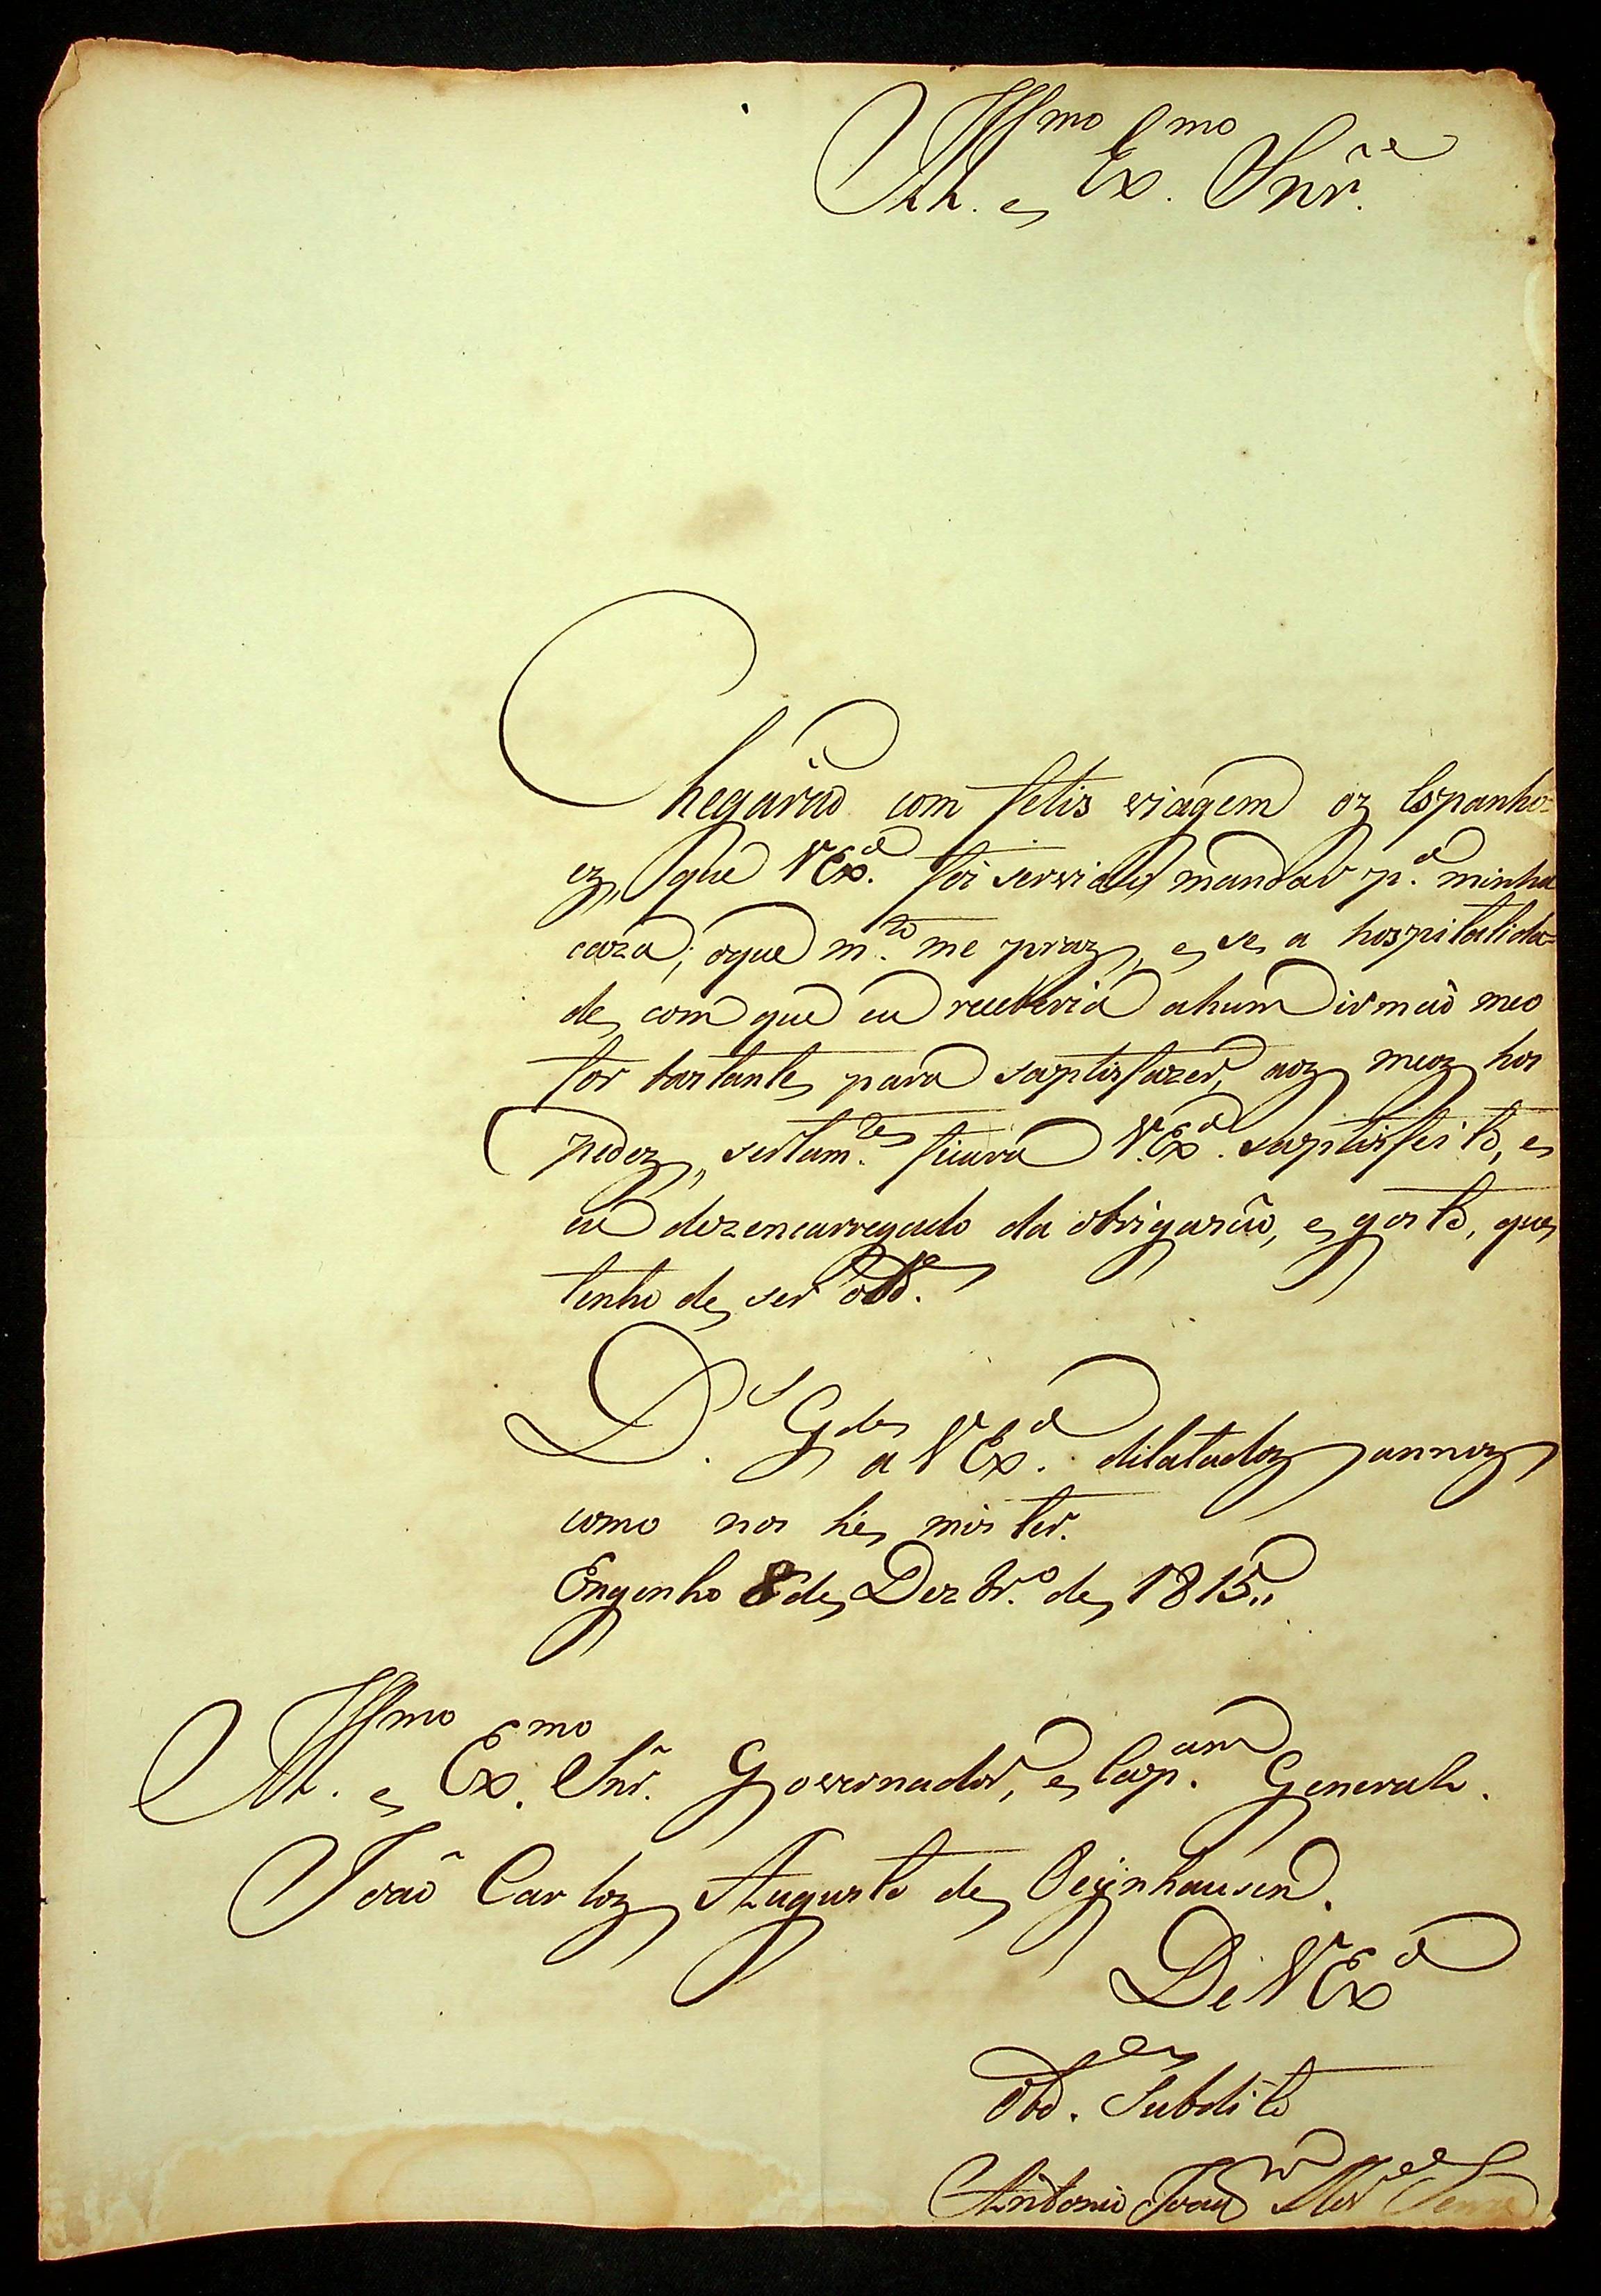 Ill.mo e Ex.mo Snr.
Chegarão com felis viagem oz Espanho=
ez, que V Ex.a foi servido mandar p.a minha
caza; oque m.to me praz, e se a hospitalida=
de com que eu receberia ahum irmaõ meo
for bastante para saptisfazer, aoz meoz hos
pedez, sertam.te ficará V.Ex.a saptisfeito, e
eu dezencarregado da obrigasaõ, e gosto, que
tenho de ser obd.e
D.s G.de a V Ex.a dilatadoz annoz
como nos hé mister.
Engenho 8 de Dezbr.o de 1815,,
Ill.mo e Ex.mo Snr. Governador, e Cap.am General.
Joaõ Carloz Augusto de Oeÿnhausen.
De V Ex.a
Obd.e Subdito
Antonio Joaq.m